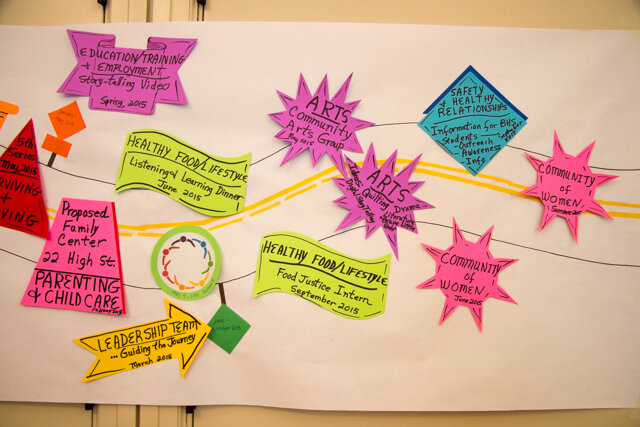 EDUCATION/TRAINING
+ EMPLOYMENT
Story-telling Video
Spring, 2015
5th
Series
May, 2015
HEALTHY FOOD/LIFESTYLE
Listening & Learning Dinner
June 2015
ARTS
Community
Arts Group
May 2015
SAFETY
& HEALTHY
RELATIONSHIPS
Information for BHS
Students
Outreach
Awareness
Info
COMMUNITY
of
WOMEN,
ARTS
Dance, Quilting, Drama
Digital Storytelling
Proposed
Family
Center
22 High St.
PARENTING
& CHILD CARE
February 2015
MAY 9, 2015
HEALTHY FOOD/LIFESTYLE
Food Justice Intern
September 2015
COMMUNITY
of
WOMEN,
June 2015
LEADERSHIP TEAM
... Guiding the Journey
March 2015